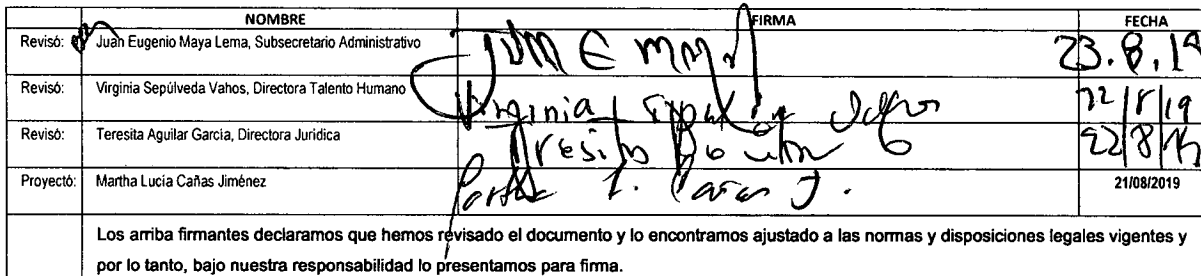 NOMBRE FIRMA FECHA
Revisó: Juan Eugenio Maya Lema, Subsecretario Administrativo JUAN E MAYA 23.8.19
Revisó: Virginia Sepúlveda Vahos, Directora Talento Humano Virginia 22/8/19
Revisó: Teresita Aguilar García, Directora Jurídica 22/8/19
Proyectó: Martha Lucía Cañas Jiménez Martha L. Cañas J. 21/08/2019
Los arriba firmantes declaramos que hemos revisado el documento y lo encontramos ajustado a las normas y disposiciones legales vigentes y
por lo tanto, bajo nuestra responsabilidad lo presentamos para firma.